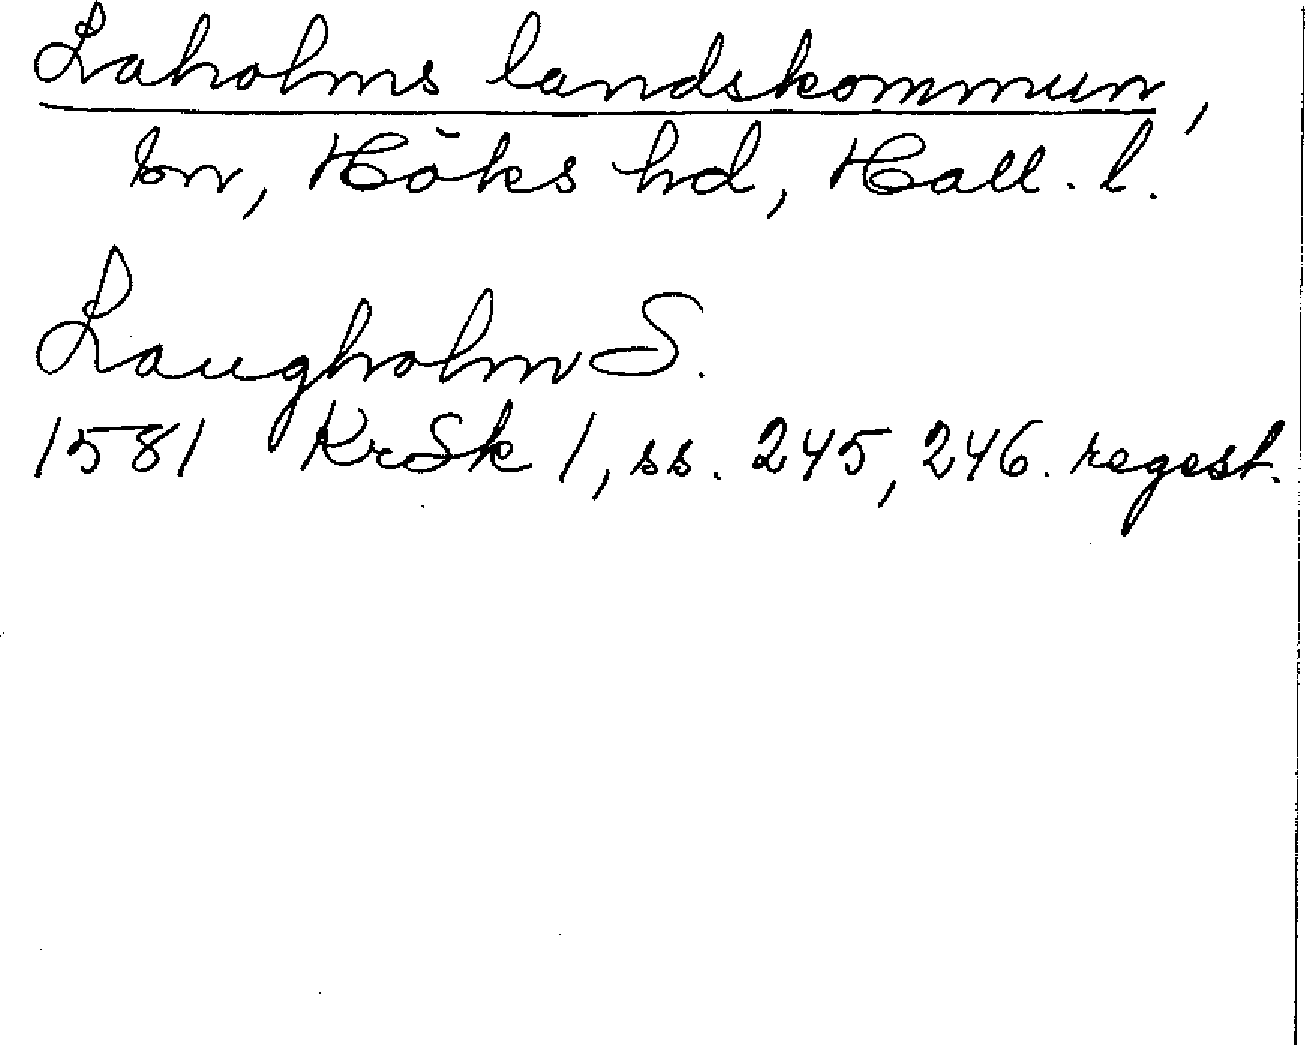 Laholms landskommun,
sn, Höks hd, Hall. l.
Laugholm S.
1581 KrSk 1, ss. 245, 246. regest.